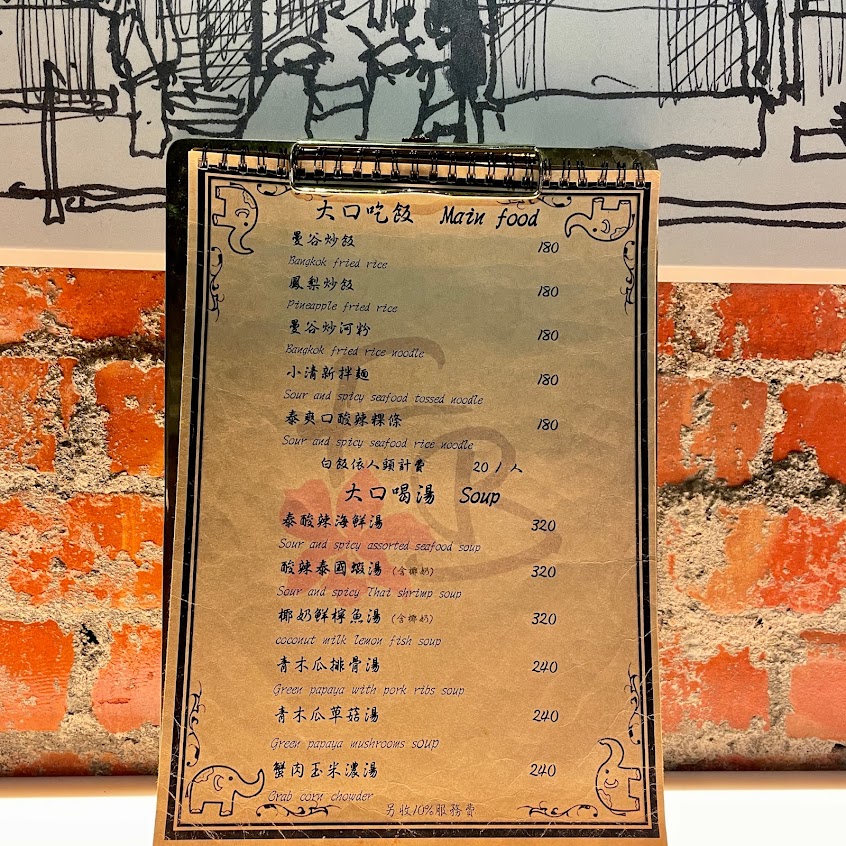 大口吃飯 Main food
曼谷炒飯 180
Bangkok fried rice
鳳梨炒飯 180
Pineapple fried rice
曼谷炒河粉 180
Bangkok fried rice noodle
小清新拌麵 180
Sour and spicy seafood tossed noodle
泰爽口酸辣粿條 180
Sour and spicy seafood rice noodle
白飯依人頭計費 20 / 人
大口喝湯 Soup
泰酸辣海鮮湯 320
Sour and spicy assorted seafood soup
酸辣泰國蝦湯 (含椰奶) 320
Sour and spicy Thai shrimp soup
椰奶鮮檸魚湯 (含椰奶) 320
coconut milk lemon fish soup
青木瓜排骨湯 240
Green papaya with pork ribs soup
青木瓜草菇湯 240
Green papaya mushrooms soup
蟹肉玉米濃湯 240
Crab corn chowder
另收10%服務費